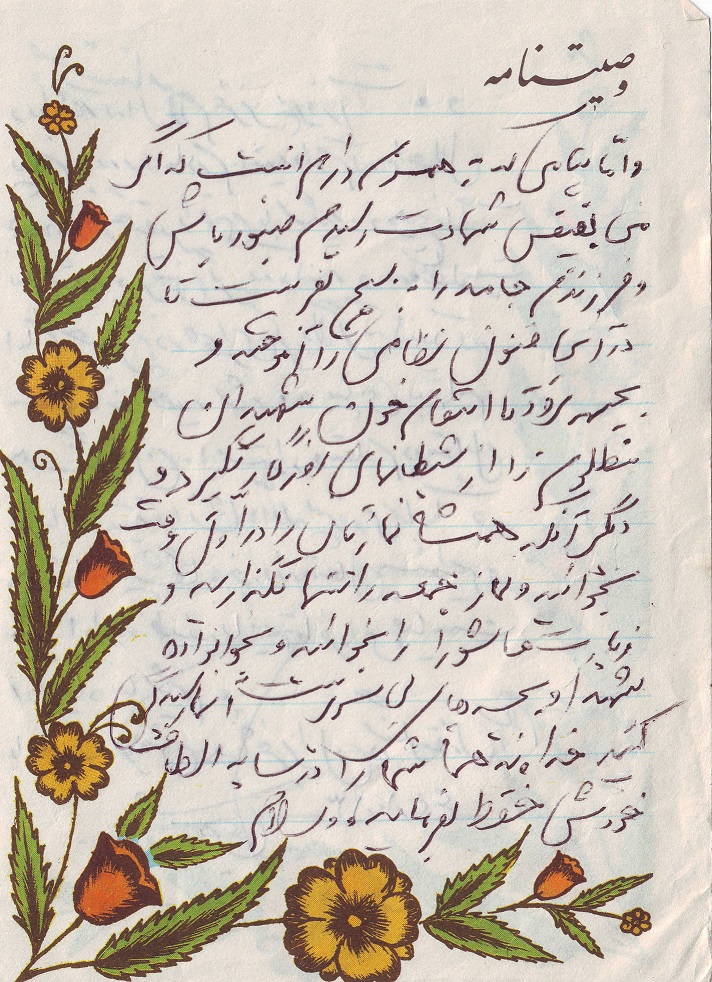 وصیتنامه
و اما پیامی که به همسرم دارم اینست که اگر
من بفیض شهادت رسیدم صبور باش
و فرزندم حامد را به بسیج بفرست تا
در آن فنون نظامی را آموخته و
بجبهه رود تا انتقام خون شهیدان
مظلوم را از شیطانهای روزگار بگیرد و
دیگر آنکه همیشه نمازتان را در اول وقت
بخوانید و نماز جمعه را تنها نگذارید و
زیارت عاشورا را بخوانید و بخانواده
شهدا و بچه‌های بی سرپرست آنها رسیدگی
کنید خداوند همه شما را در سایه الطاف
خودش حفظ بفرماید والسلام